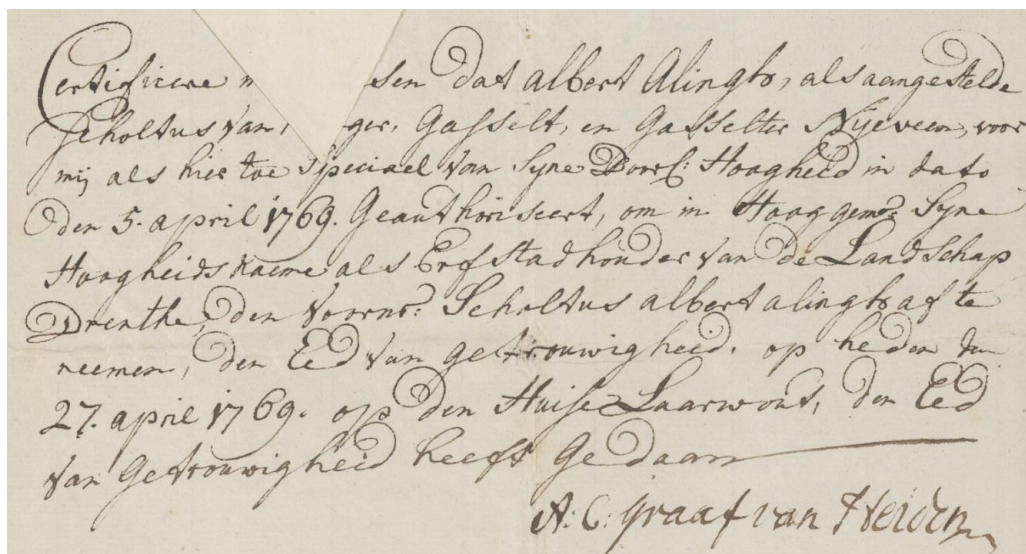 Certificere m sen dat albert Alingh, als aangestelde
Scholtus van ger, Gasselt, en Gasselter Nijeveen, voor
mij als hier toe Speciael van Syne Doorl: Hoogheid in dato
den 5. april 1769. Geauthoriseert, om in Hoog gem: Syne
Hoogheids naeme als Erfstadhouder van de Landschap
Drenthe, den voorn: Scholtus albert alingh af te
neemen, den Eed van getrouwigheid. op heden den
27. april 1769. op den Huise Laarwout, den Eed
van getrouwigheid heeft gedaan
A: C: graaf van Heiden